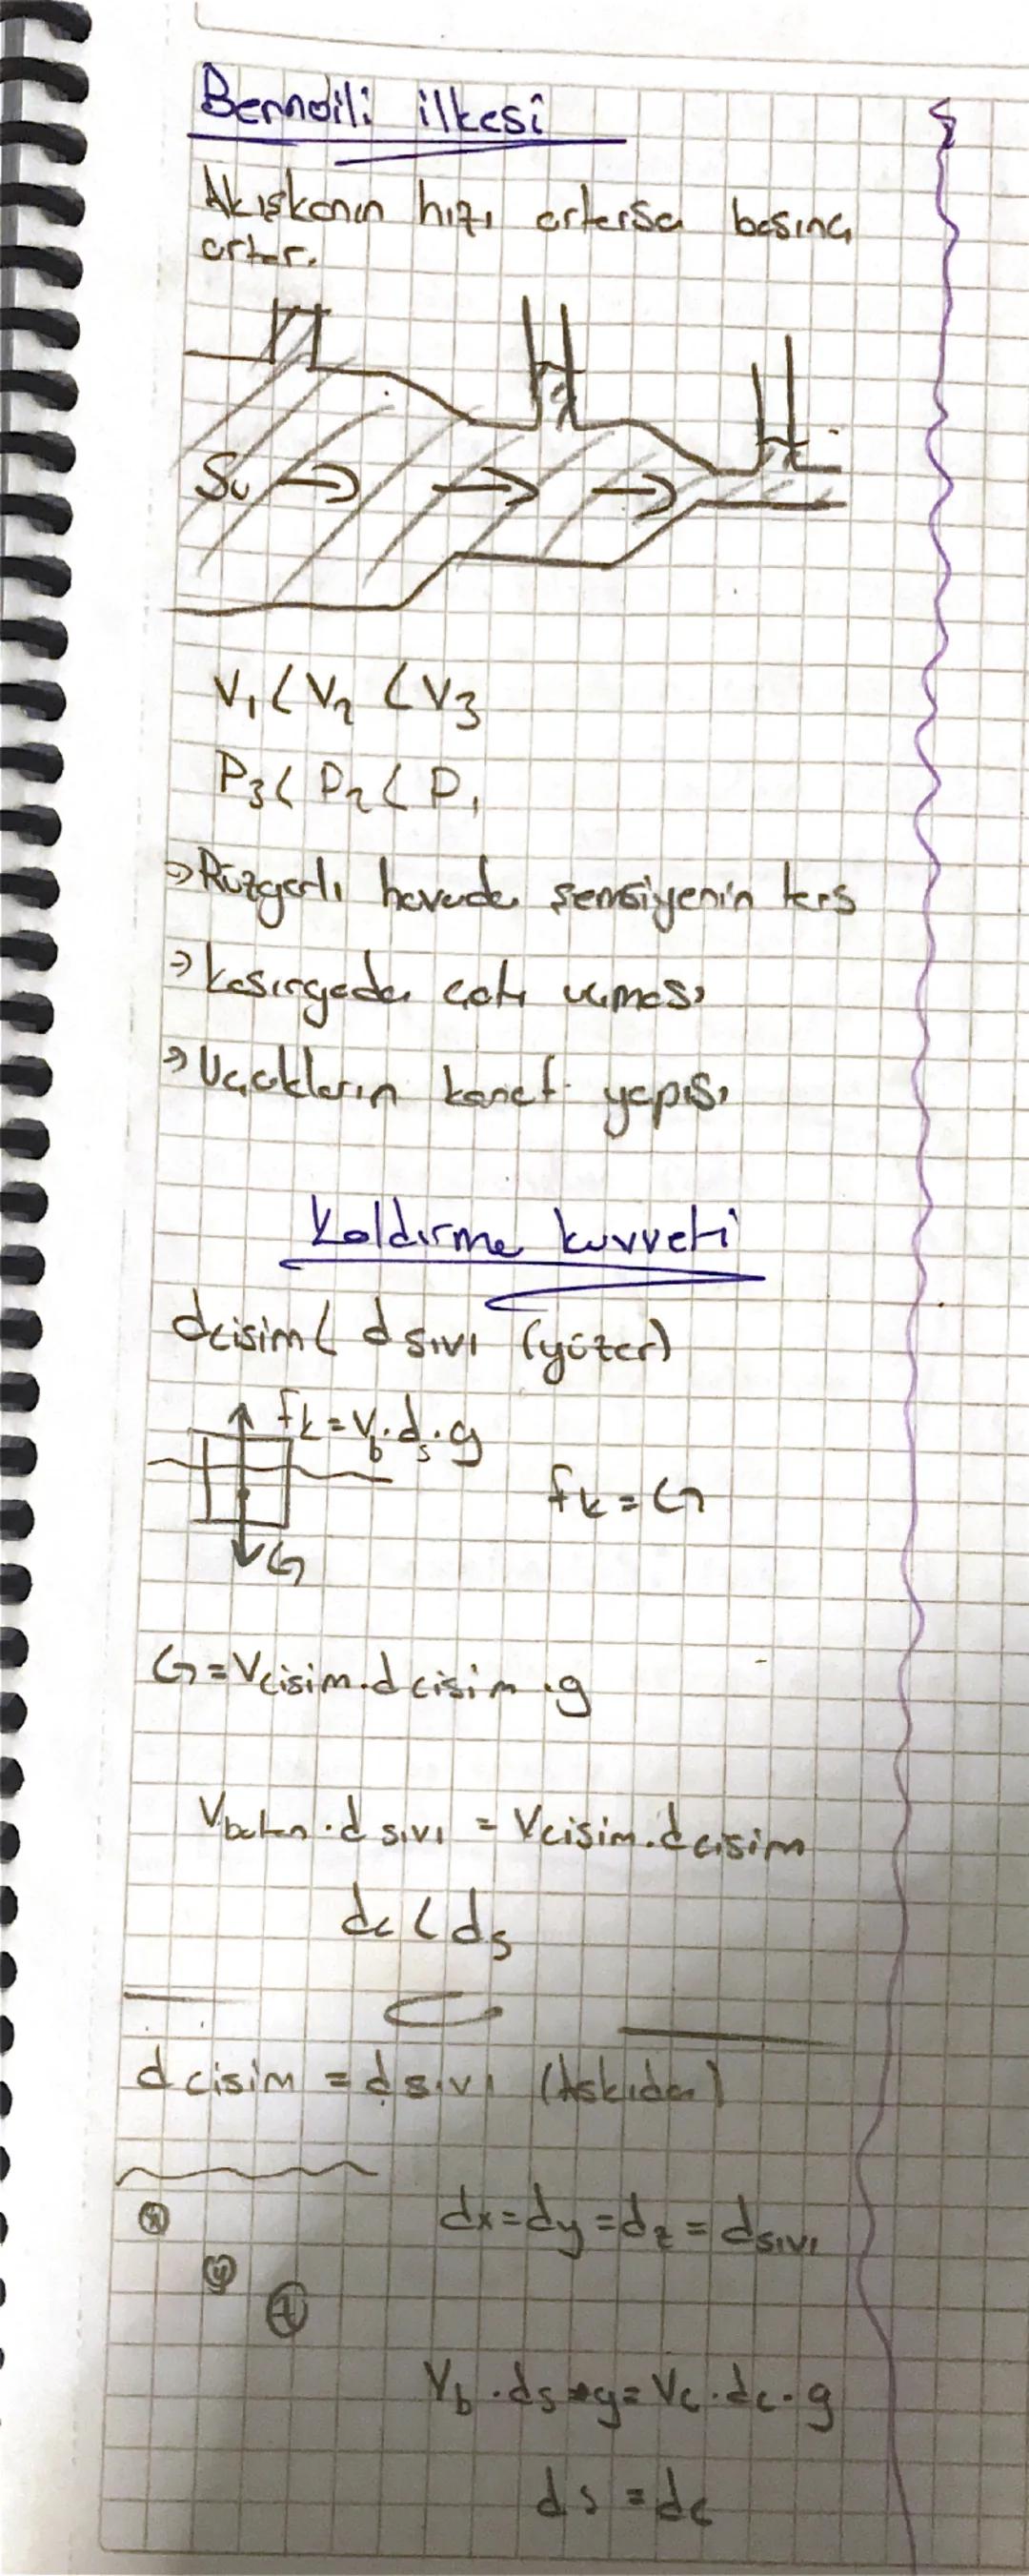 Bernoili ilkesi
Akışkanın hızı artarsa basıncı
artar.
Su
V₁ < V₂ < V₃
P₃ < P₂ < P₁
→ Rüzgarlı havada şemsiyenin ters
→ kasırgada çatı uçması
→ Uçakların kanat yapısı
Kaldırma kuvveti
dcisim < d sıvı (yüzer)
fk = Vb.ds.g
fk = G
G
G = Vcisim.dcisim.g
Vbatan.d sıvı = Vcisim.dcisim
dc < ds
d cisim = d sıvı (Askıda)
dx = dy = dz = dsıvı
x
y
z
Vb.ds.g = Vc.dc.g
ds = dc